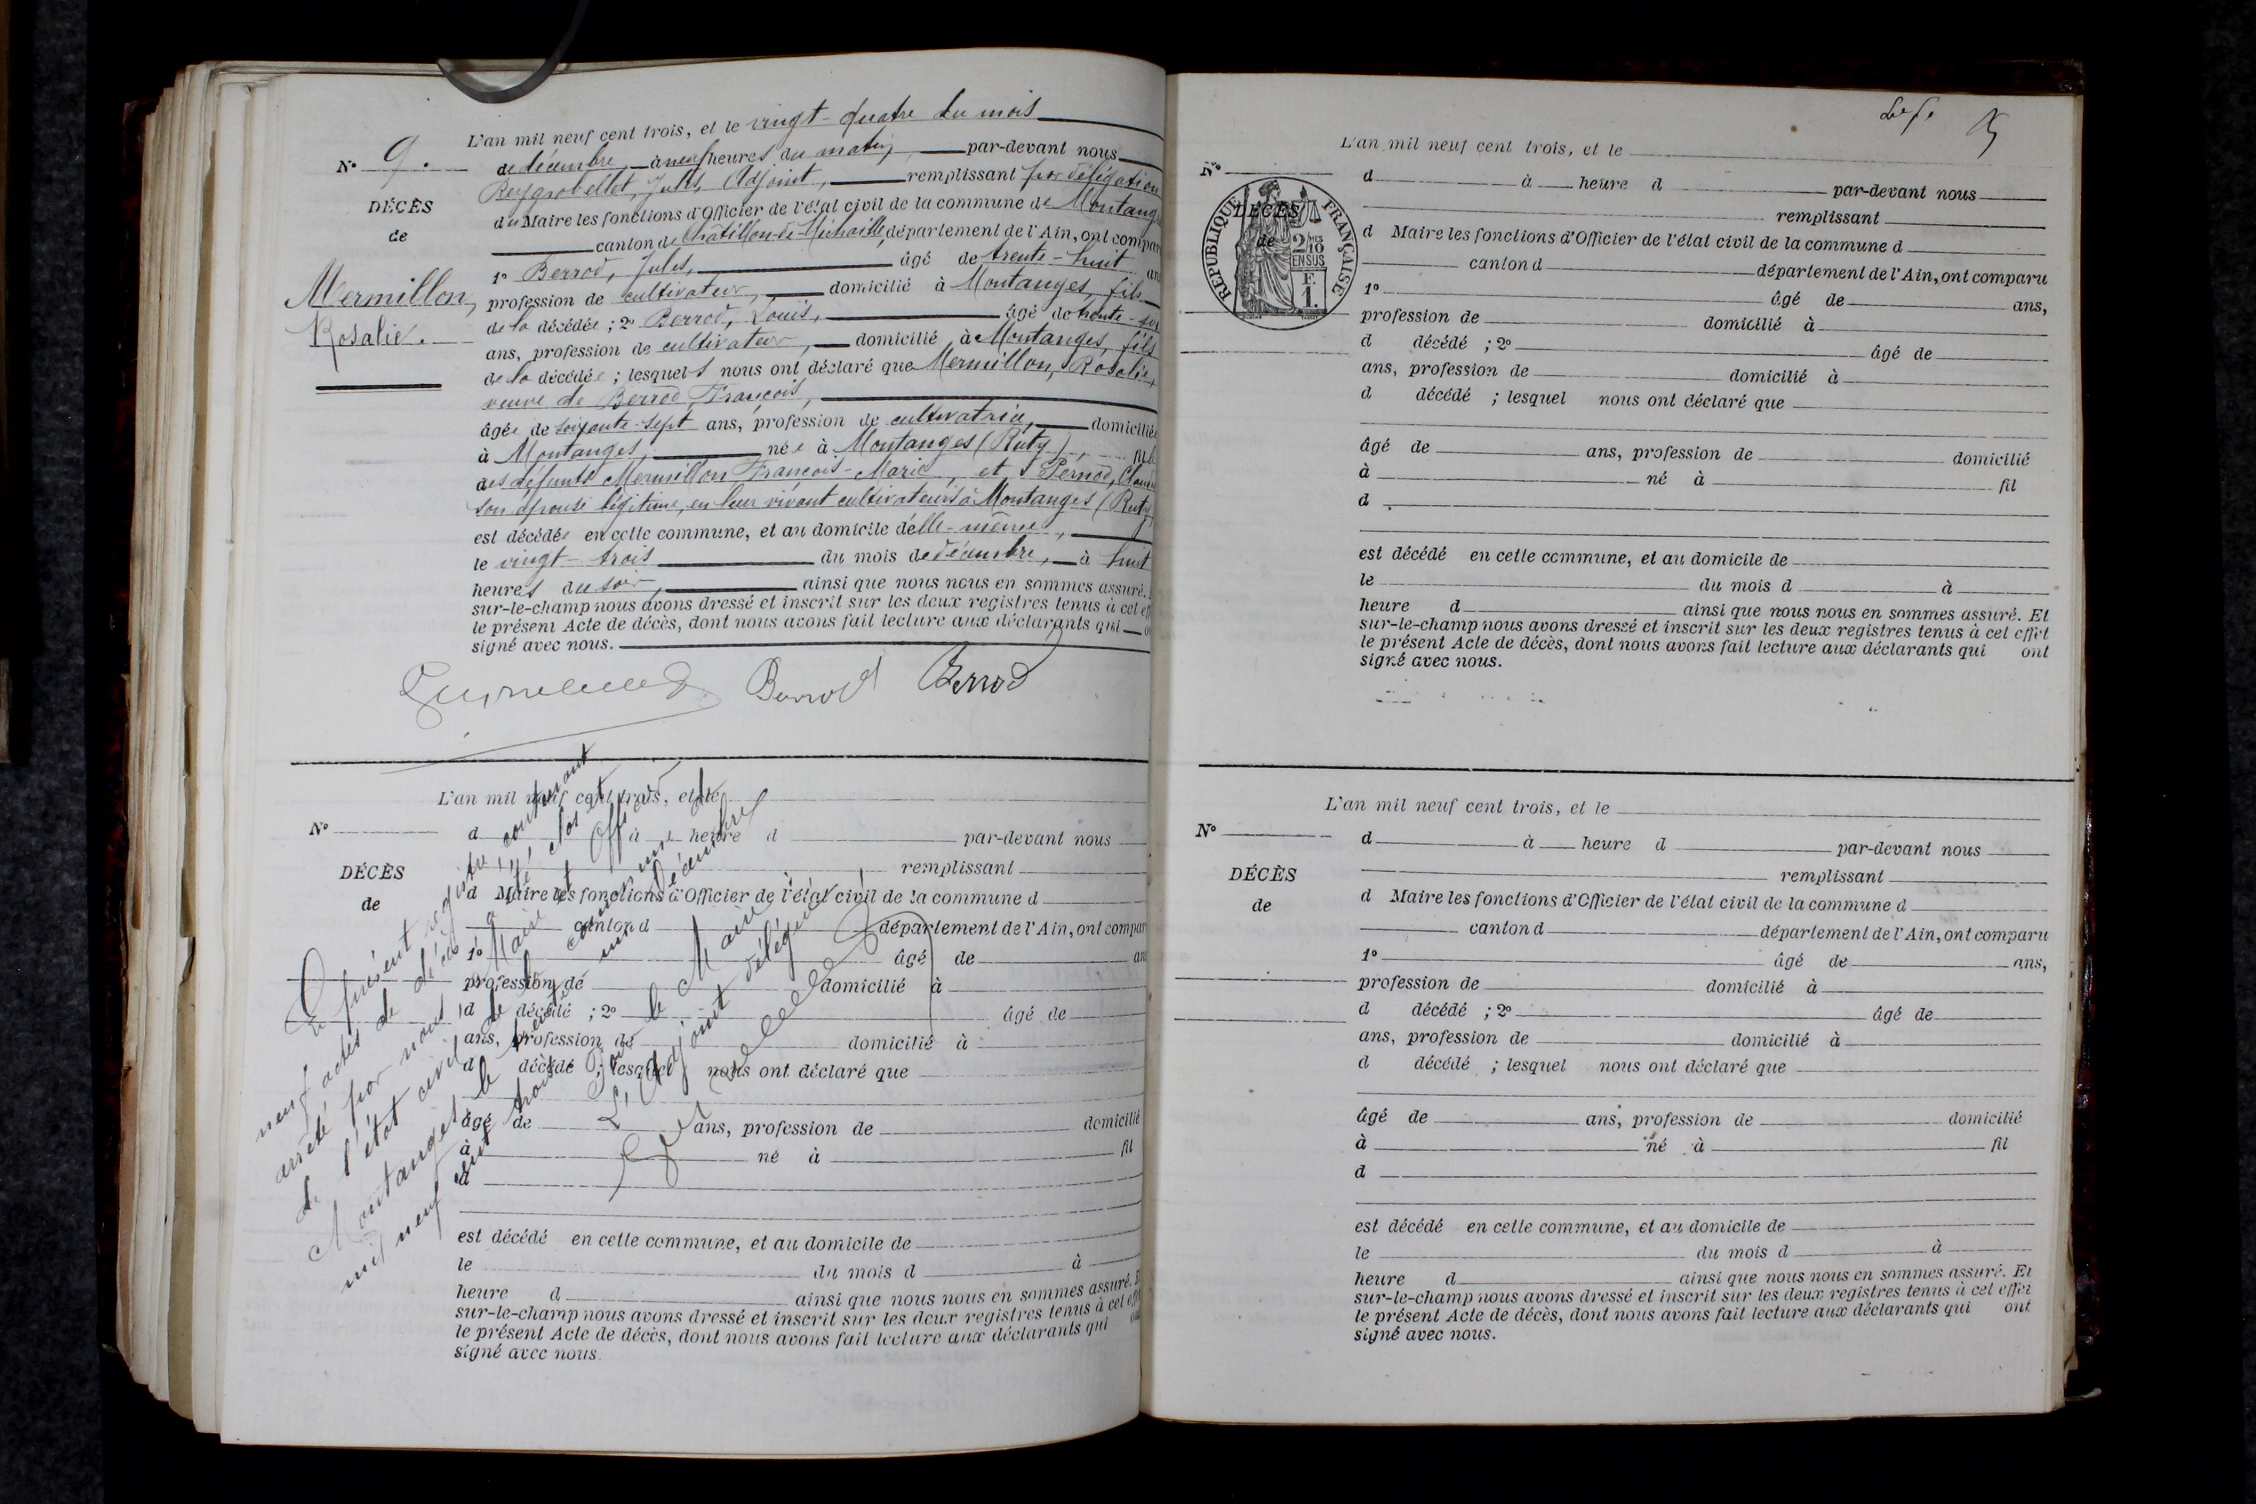 L'an mil neuf cent trois, et le vingt-quatre du mois
N° 9.
de décembre, à neuf heures du matin, par-devant nous
Reygrobellet, Jules, Adjoint, remplissant par délégation
DÉCÈS
du Maire les fonctions d'Officier de l'état civil de la commune de Montang
de
canton de Châtillon-de-Michaille, département de l'Ain, ont compar
1° Berrod, Jules, âgé de trente-huit an
Mermillon,
profession de cultivateur, domicilié à Montanges, fils
de la décédée ; 2° Berrod, Louis, âgé de trente-six
Rosalie.
ans, profession de cultivateur, domicilié à Montanges, fils
de la décédée ; lesquels nous ont déclaré que Mermillon, Rosalie,
veuve de Berrod, François,
âgée de soixante-sept ans, profession de cultivatrice, domicilié
à Montanges, née à Montanges (Ruty),
des défunts Mermillon François-Marie, et Pernod,
son épouse légitime, en leur vivant cultivateurs à Montanges (Ruty
est décédée en cette commune, et au domicile d'elle-même,
le vingt-trois du mois de décembre, à huit
heures du soir, ainsi que nous nous en sommes assuré.
sur-le-champ nous avons dressé et inscrit sur les deux registres tenus à cel eff
le présent Acte de décès, dont nous avons fait lecture aux déclarants qui o
signé avec nous.
Berrod Berrod
L'an mil neuf cent trois, et le
N°
d à heure d par-devant nous
remplissant
DÉCÈS
d Maire les fonctions d'Officier de l'état civil de la commune d
de
canton d département de l'Ain, ont compar
1° âgé de an
profession de domicilié à
d décédé ; 2° âgé de
ans, profession de domicilié à
d décédé ; lesquel nous ont déclaré que
âgé de ans, profession de domicilié
à né à fil
d
est décédé en cette commune, et au domicile de
le du mois d à
heure d ainsi que nous nous en sommes assuré. E
sur-le-champ nous avons dressé et inscrit sur les deux registres tenus à cel eff
le présent Acte de décès, dont nous avons fait lecture aux déclarants qui on
signé avec nous.
Le présent registre contenant
neuf actes de décès a été clos et
arrêté par nous Maire et Officier
de l'état civil de la commune de
Montanges le trente un décembre
mil neuf cent trois.
Pour le Maire
L'Adjoint délégué
L'an mil neuf cent trois, et le
N°
d à heure d par-devant nous
remplissant
DÉCÈS
de
RÉPUBLIQUE FRANÇAISE
2 10
EN SUS
F.
1.
d Maire les fonctions d'Officier de l'état civil de la commune d
canton d département de l'Ain, ont comparu
1° âgé de ans,
profession de domicilié à
d décédé ; 2° âgé de
ans, profession de domicilié à
d décédé ; lesquel nous ont déclaré que
âgé de ans, profession de domicilié
à né à fil
d
est décédé en cette commune, et au domicile de
le du mois d à
heure d ainsi que nous nous en sommes assuré. Et
sur-le-champ nous avons dressé et inscrit sur les deux registres tenus à cel effet
le présent Acte de décès, dont nous avons fait lecture aux déclarants qui ont
signé avec nous.
L'an mil neuf cent trois, et le
N°
d à heure d par-devant nous
remplissant
DÉCÈS
d Maire les fonctions d'Officier de l'état civil de la commune d
de
canton d département de l'Ain, ont comparu
1° âgé de ans,
profession de domicilié à
d décédé ; 2° âgé de
ans, profession de domicilié à
d décédé ; lesquel nous ont déclaré que
âgé de ans, profession de domicilié
à né à fil
d
est décédé en cette commune, et au domicile de
le du mois d à
heure d ainsi que nous nous en sommes assuré. Et
sur-le-champ nous avons dressé et inscrit sur les deux registres tenus à cel effet
le présent Acte de décès, dont nous avons fait lecture aux déclarants qui ont
signé avec nous.